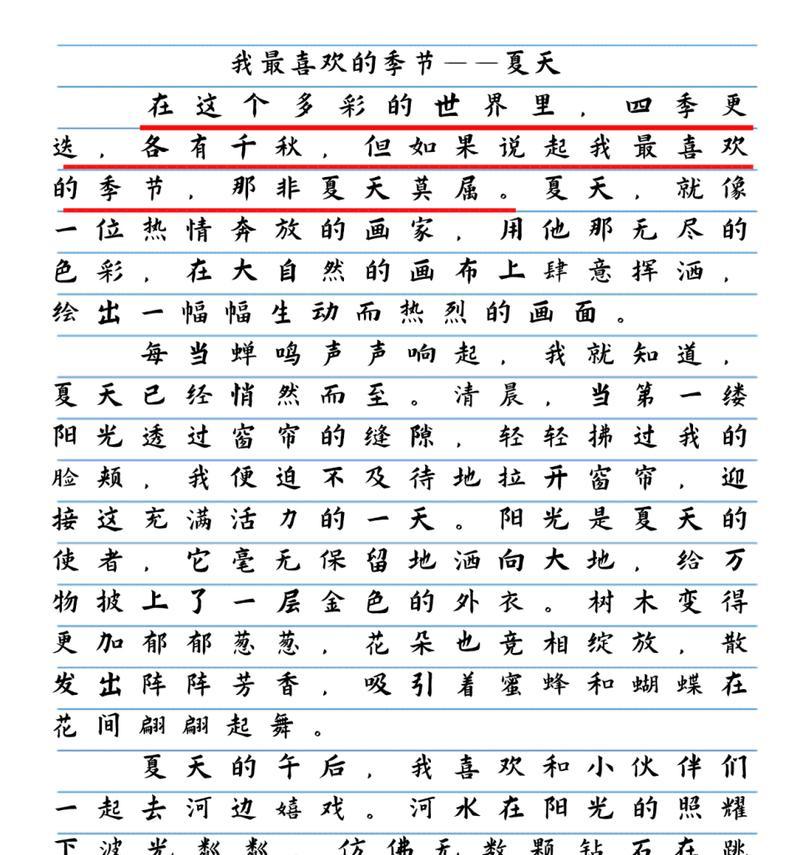 我最喜欢的季节——夏天
在这个多彩的世界里，四季更
迭，各有千秋，但如果说起我最喜欢
的季节，那非夏天莫属。夏天，就像
一位热情奔放的画家，用他那无尽的
色彩，在大自然的画布上肆意挥洒，
绘出一幅幅生动而热烈的画面。
每当蝉鸣声声响起，我就知道，
夏天已经悄然而至。清晨，当第一缕
阳光透过窗帘的缝隙，轻轻拂过我的
脸颊，我便迫不及待地拉开窗帘，迎
接这充满活力的一天。阳光是夏天的
使者，它毫无保留地洒向大地，给万
物披上了一层金色的外衣。树木变得
更加郁郁葱葱，花朵也竞相绽放，散
发出阵阵芳香，吸引着蜜蜂和蝴蝶在
花间翩翩起舞。
夏天的午后，我喜欢和小伙伴们
一起去河边嬉戏。河水在阳光的照耀
下波光粼粼，仿佛无数颗钻石在跳